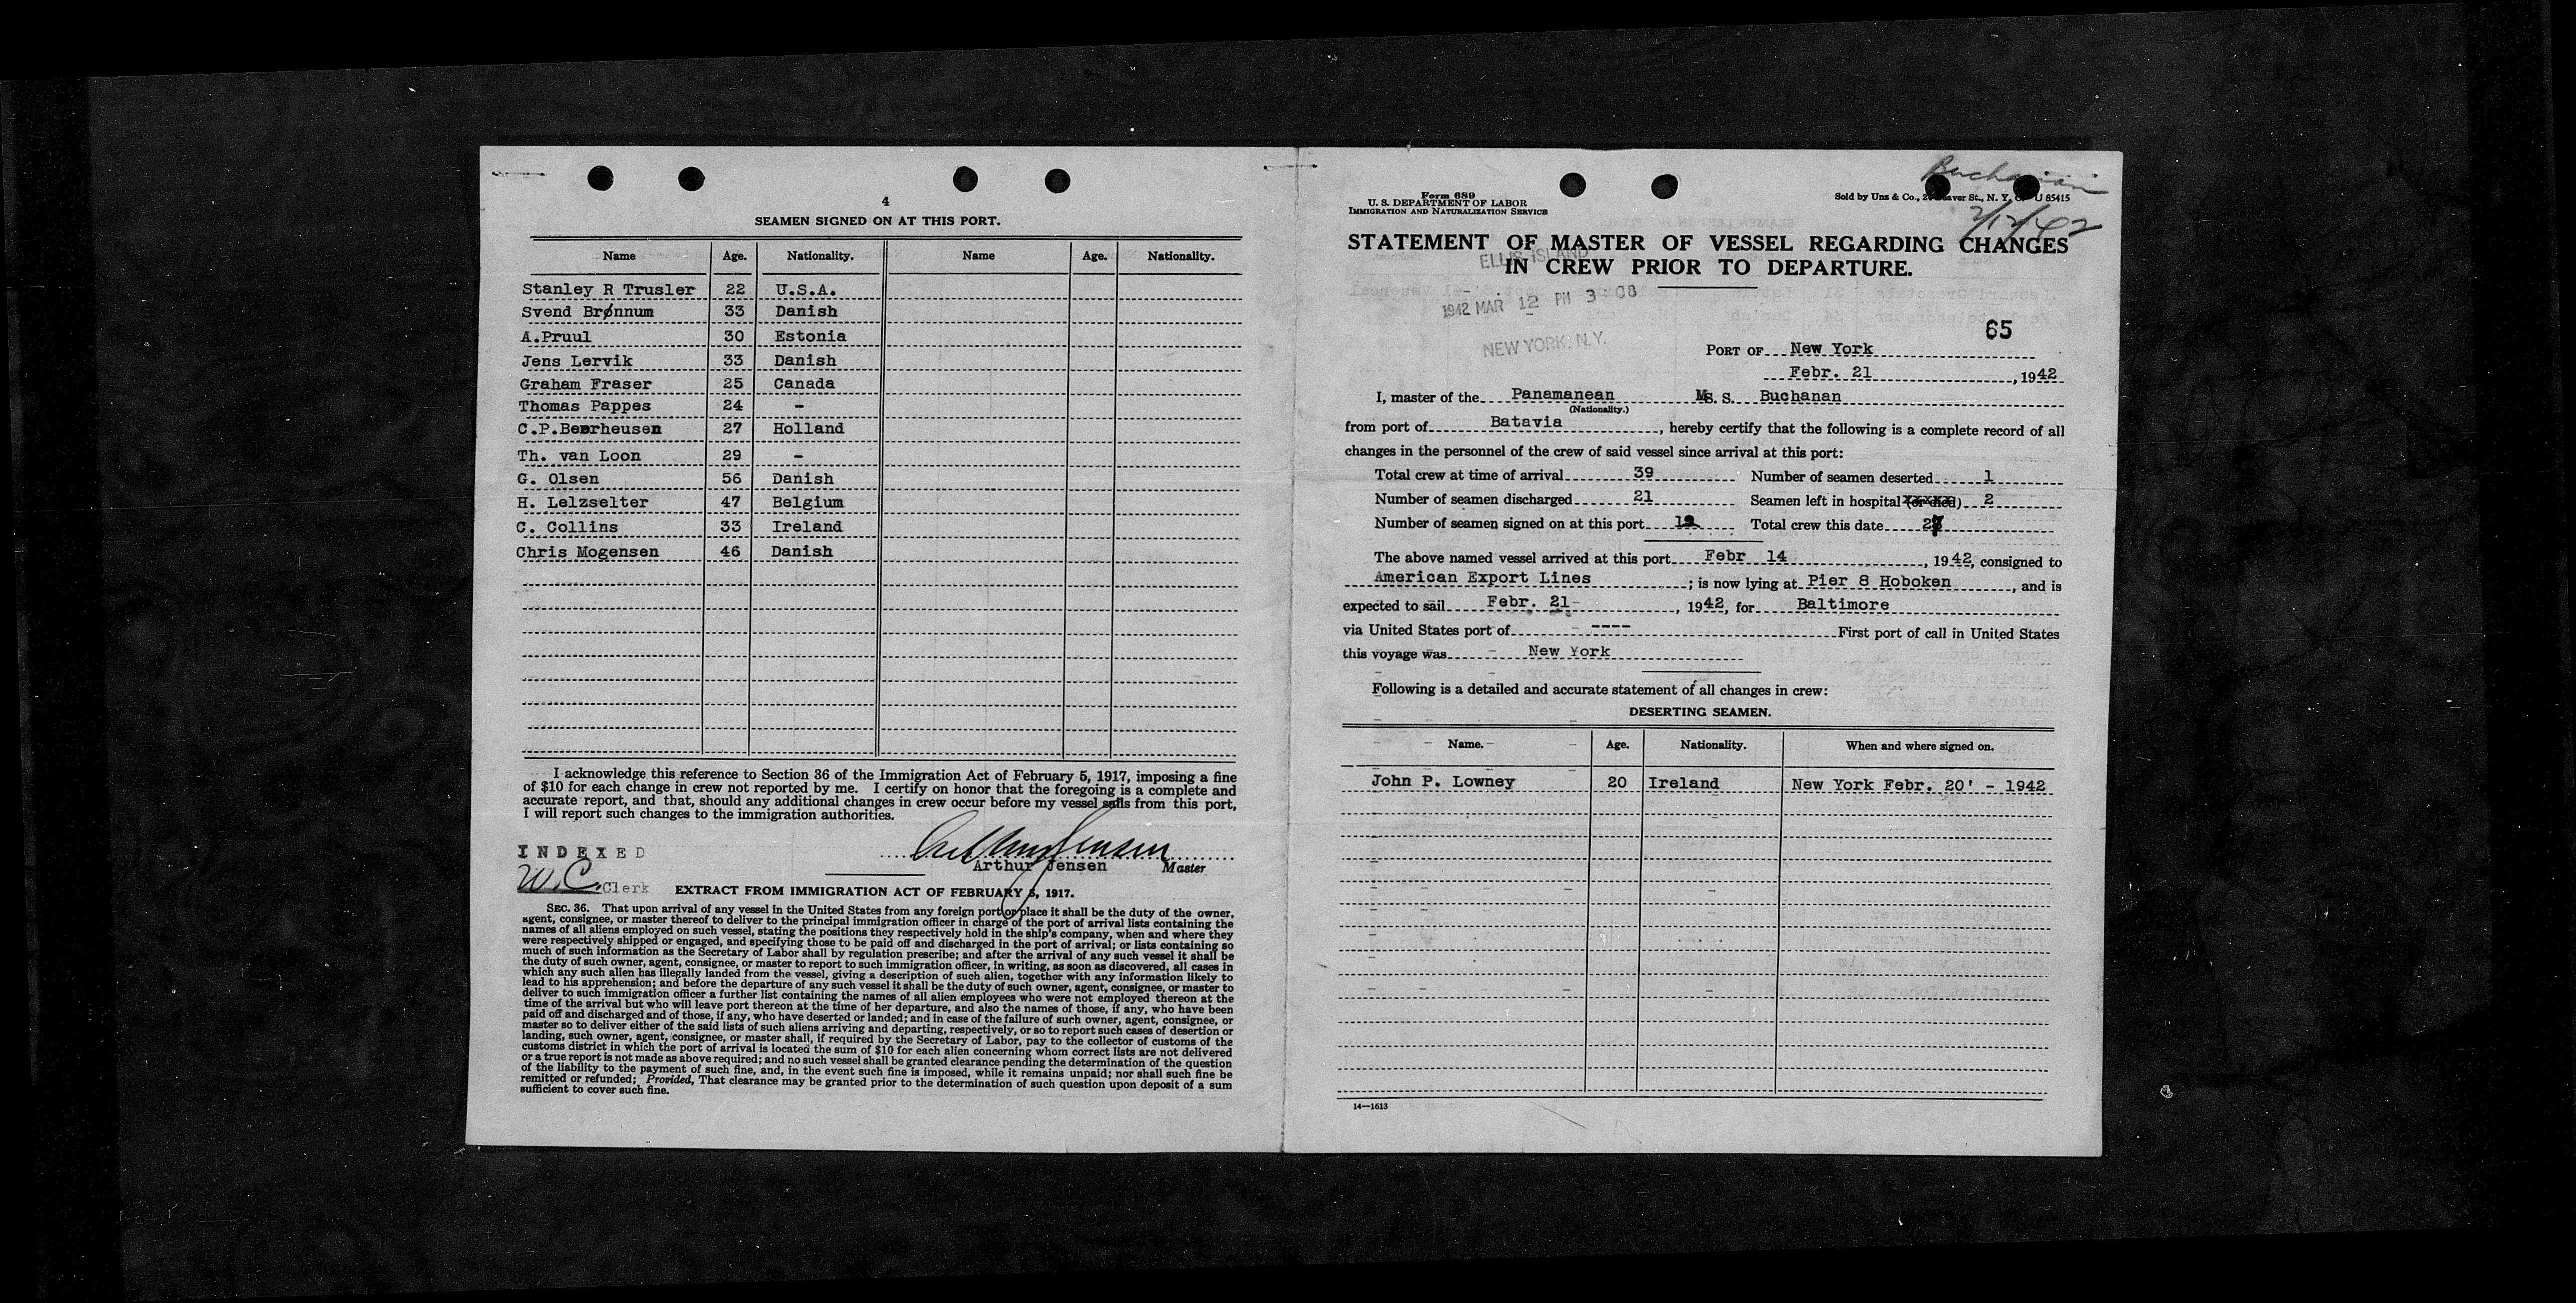 4
SEAMEN SIGNED ON AT THIS PORT.
Name Age. Nationality. Name Age. Nationality.
Stanley R Trusler 22 U.S.A.
Svend Brønnum 33 Danish
A.Pruul 30 Estonia
Jens Lervik 33 Danish
Graham Fraser 25 Canada
Thomas Pappes 24 -
C.P.Beerheusen 27 Holland
Th. van Loon 29 -
G. Olsen 56 Danish
H. Lelzselter 47 Belgium
C. Collins 33 Ireland
Chris Mogensen 46 Danish
I acknowledge this reference to Section 36 of the Immigration Act of February 5, 1917, imposing a fine
of $10 for each change in crew not reported by me. I certify on honor that the foregoing is a complete and
accurate report, and that, should any additional changes in crew occur before my vessel sails from this port,
I will report such changes to the immigration authorities.
INDEXED
Arthur Jensen Master
W.C. Clerk
EXTRACT FROM IMMIGRATION ACT OF FEBRUARY 5, 1917.
SEC. 36. That upon arrival of any vessel in the United States from any foreign port or place it shall be the duty of the owner,
agent, consignee, or master thereof to deliver to the principal immigration officer in charge of the port of arrival lists containing the
names of all aliens employed on such vessel, stating the positions they respectively hold in the ship's company, when and where they
were respectively shipped or engaged, and specifying those to be paid off and discharged in the port of arrival; or lists containing so
much of such information as the Secretary of Labor shall by regulation prescribe; and after the arrival of any such vessel it shall be
the duty of such owner, agent, consignee, or master to report to such immigration officer, in writing, as soon as discovered, all cases in
which any such alien has illegally landed from the vessel, giving a description of such alien, together with any information likely to
lead to his apprehension; and before the departure of any such vessel it shall be the duty of such owner, agent, consignee, or master to
deliver to such immigration officer a further list containing the names of all alien employees who were not employed thereon at the
time of the arrival but who will leave port thereon at the time of her departure, and also the names of those, if any, who have been
paid off and discharged and of those, if any, who have deserted or landed; and in case of the failure of such owner, agent, consignee, or
master so to deliver either of the said lists of such aliens arriving and departing, respectively, or so to report such cases of desertion or
landing, such owner, agent, consignee, or master shall, if required by the Secretary of Labor, pay to the collector of customs of the
customs district in which the port of arrival is located the sum of $10 for each alien concerning whom correct lists are not delivered
or a true report is not made as above required; and no such vessel shall be granted clearance pending the determination of the question
of the liability to the payment of such fine, and, in the event such fine is imposed, while it remains unpaid; nor shall such fine be
remitted or refunded; Provided, That clearance may be granted prior to the determination of such question upon deposit of a sum
sufficient to cover such fine.
Buchanan
Form 689
U. S. DEPARTMENT OF LABOR
IMMIGRATION AND NATURALIZATION SERVICE
Sold by Unz & Co., 2 Beaver St., N. Y. C. U 85415
2/12/42
STATEMENT OF MASTER OF VESSEL REGARDING CHANGES
IN CREW PRIOR TO DEPARTURE.
ELLIS ISLAND
1942 MAR 12 PM 3:08
NEW YORK, N.Y.
65
PORT OF New York
Febr. 21, 1942
I, master of the Panamanean MS. S. Buchanan
(Nationality.)
from port of Batavia, hereby certify that the following is a complete record of all
changes in the personnel of the crew of said vessel since arrival at this port:
Total crew at time of arrival 39 Number of seamen deserted 1
Number of seamen discharged 21 Seamen left in hospital (or died) 2
Number of seamen signed on at this port 12 Total crew this date 27
The above named vessel arrived at this port Febr 14, 1942, consigned to
American Export Lines; is now lying at Pier 8 Hoboken, and is
expected to sail Febr. 21, 1942, for Baltimore
via United States port of ---- First port of call in United States
this voyage was New York
Following is a detailed and accurate statement of all changes in crew:
DESERTING SEAMEN.
Name. Age. Nationality. When and where signed on.
John P. Lowney 20 Ireland New York Febr. 20' - 1942
14—1613